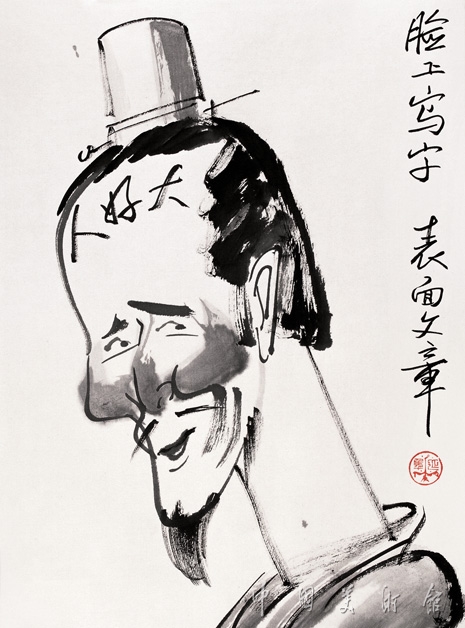 脸上写字 表面文章
大好人
中国美术馆